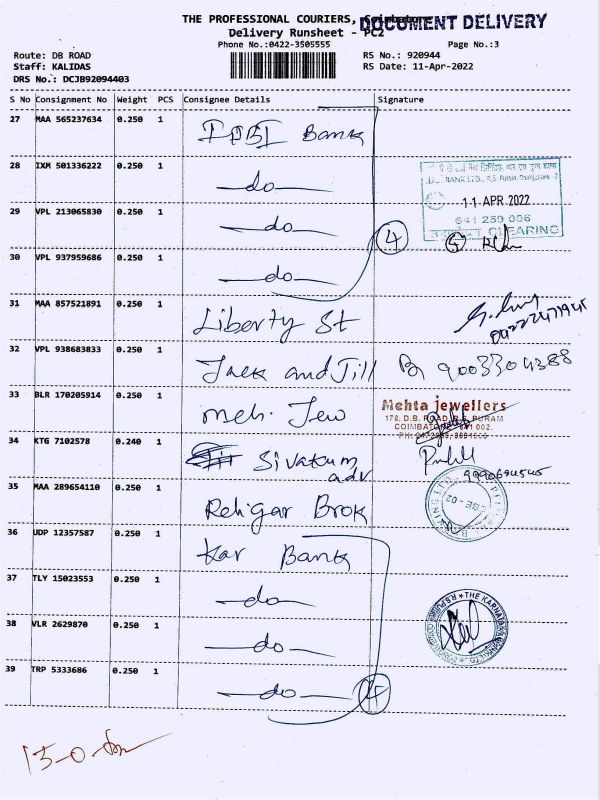 THE PROFESSIONAL COURIERS, Coimbatore
DOCUMENT DELIVERY
Delivery Runsheet - PC2
Phone No.:0422-3505555
Page No.:3
Route: DB ROAD
RS No.: 920944
Staff: KALIDAS
RS Date: 11-Apr-2022
DRS No.: DCJB92094403
S No Consignment No Weight PCS Consignee Details Signature
27 MAA 565237634 0.250 1 IDBI Bank
28 IXM 501336222 0.250 1 —do—
BANK LTD., R.S. Puram, Coimbatore - 2
11 APR 2022
29 VPL 213065830 0.250 1 —do—
641 259 006
CLEARING
4
30 VPL 937959686 0.250 1 —do—
31 MAA 857521891 0.250 1 Liberty St
04222471945
32 VPL 938683833 0.250 1 Jack and Jill 9003304388
33 BLR 170205914 0.250 1 meh. Jew
Mehta jewellers
178, D.B. ROAD, R.S. PURAM
COIMBATORE - 641 002.
34 KTG 7102578 0.240 1 Sivakum adv
35 MAA 289654110 0.250 1 Religar Brok
36 UDP 12357587 0.250 1 Kar Bank
37 TLY 15023553 0.250 1 —do—
38 VLR 2629870 0.250 1 —do—
39 TRP 5333686 0.250 1 —do—
4